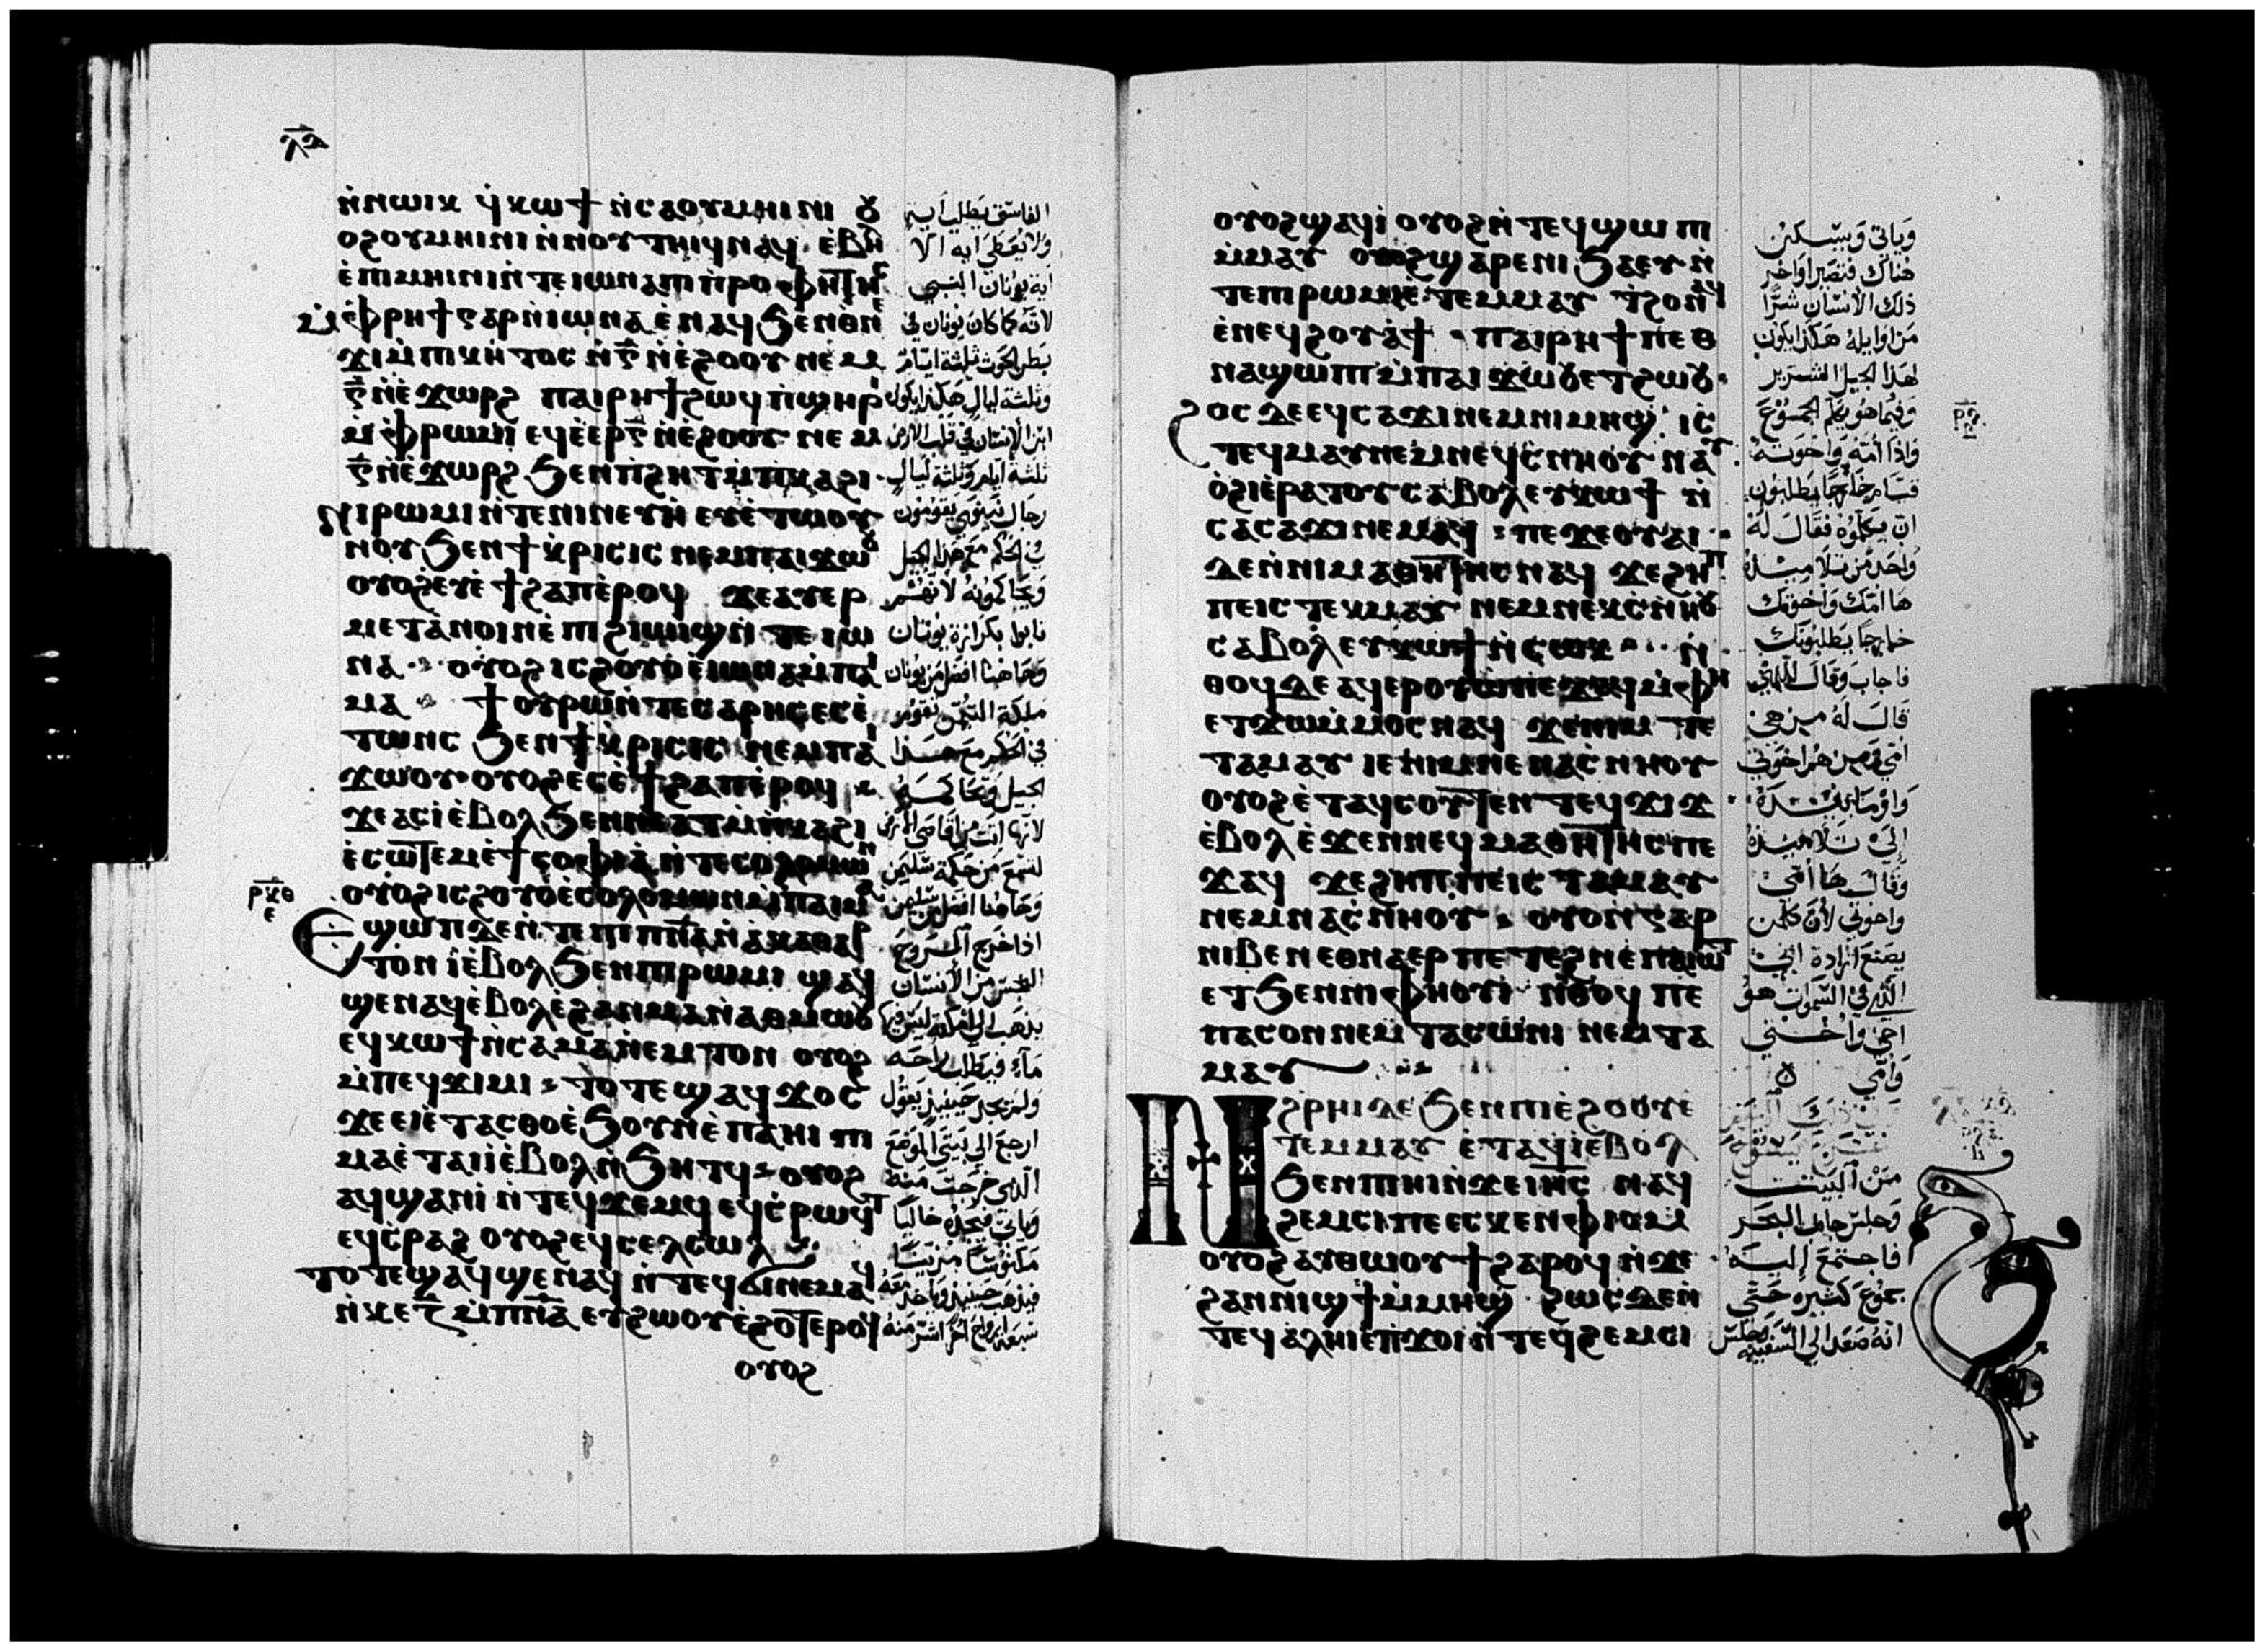 ⲗⲁ
ⲛ̀ⲛⲱⲓⲕ ϥ̀ⲕⲱϯ ⲛ̀ⲥⲁⲟⲩⲙⲏⲓⲛⲓ ⲟⲩ
ⲟϩⲟⲩⲙⲏⲓⲛⲓ ⲛ̀ⲛⲟⲩⲧⲏⲓϥ ⲛⲁϥ ⲉ̀ⲃⲏⲗ
ⲉ̀ⲡⲙⲏⲓⲛⲓ ⲛ̀ⲧⲉ ⲓⲱⲛⲁ ⲡⲓⲡ̀ⲣⲟⲫⲏⲧⲏⲥ
ⲙ̀ⲫ̀ⲣⲏϯ ⲅⲁⲣ ⲛ̀ⲓⲱⲛⲁ ⲉ̀ⲛⲁϥ ϧⲉⲛ ⲑⲛⲉ
ϫⲓ ⲙ̀ⲡⲓⲕⲏⲧⲟⲥ ⲛ̀ⲅ̄ ⲛ̀ⲉ̀ϩⲟⲟⲩ ⲛⲉⲙ
ⲅ̄ ⲛ̀ⲉ̀ϫⲱⲣϩ ⲡⲁⲓⲣⲏϯ ϩⲱϥ ⲡ̀ϣⲏⲣⲓ
ⲙ̀ⲫ̀ⲣⲱⲙⲓ ⲉϥⲉ̀ⲉⲣ ⲅ̄ ⲛ̀ⲉ̀ϩⲟⲟⲩ ⲛⲉⲙ
ⲅ̄ ⲛ̀ⲉ̀ϫⲱⲣϩ ϧⲉⲛ ⲡ̀ϩⲏⲧ ⲙ̀ⲡ̀ⲕⲁϩⲓ
ⲛⲓⲣⲱⲙⲓ ⲛ̀ⲧⲉ ⲛⲓⲛⲉⲩⲏ ⲉⲩⲉ̀ⲧⲱⲟⲩ
ⲛⲟⲩ ϧⲉⲛ ϯⲕ̀ⲣⲓⲥⲓⲥ ⲛⲉⲙ ⲡⲁⲓϫⲱⲟⲩ
ⲟⲩⲟϩ ⲉⲩⲉ̀ϯϩⲁⲡ ⲉ̀ⲣⲟϥ ϫⲉ ⲁⲩⲉⲣ
ⲙⲉⲧⲁⲛⲟⲓⲛ ⲉ̀ⲡϩⲓⲱⲓϣ ⲛ̀ⲧⲉ ⲓⲱ
ⲛⲁ ⲟⲩⲟϩ ⲓⲥ ϩⲟⲩⲟ̀ ⲉ̀ⲓⲱⲛⲁ ⲙ̀ⲡⲁⲓ
ⲙⲁ ϯⲟⲩⲣⲱ ⲛ̀ⲧⲉ ⲥⲁⲣⲏⲥ ⲉⲥⲉ̀
ⲧⲱⲛⲥ ϧⲉⲛ ϯⲕ̀ⲣⲓⲥⲓⲥ ⲛⲉⲙ ⲡⲁⲓ
ϫⲱⲟⲩ ⲟⲩⲟϩ ⲉⲥⲉ̀ϯϩⲁⲡ ⲉ̀ⲣⲟϥ
ϫⲉ ⲁⲥⲓ̀ ⲉ̀ⲃⲟⲗ ϧⲉⲛ ⲛⲉⲁⲧ ⲙ̀ⲡ̀ⲕⲁϩⲓ
ⲉ̀ⲥⲱⲧⲉⲙ ⲉ̀ϯⲥⲟⲫⲓⲁ ⲛ̀ⲧⲉ ⲥⲟⲗⲟⲙⲱⲛ
ⲟⲩⲟϩ ⲓⲥ ϩⲟⲩⲟ̀ ⲉ̀ⲥⲟⲗⲟⲙⲱⲛ ⲙ̀ⲡⲁⲓⲙⲁ
ⲣⲕⲑ ⲉ
Ⲉϣⲱⲡ ⲇⲉ ⲛ̀ⲧⲉ ⲡⲓⲡ̅ⲛ̅ⲁ̅ ⲛ̀ⲁⲕⲁⲑⲁⲣ
ⲧⲟⲛ ⲓ̀ ⲉ̀ⲃⲟⲗ ϧⲉⲛ ⲡⲓⲣⲱⲙⲓ ϣⲁϥ
ϣⲉⲛⲁϥ ⲉ̀ⲃⲟⲗ ⲉϩⲁⲛⲙⲁ ⲛ̀ⲁⲑⲙⲱⲟⲩ
ⲉϥⲕⲱϯ ⲛ̀ⲥⲁ ⲙⲁⲛⲉⲙⲧⲟⲛ ⲟⲩⲟϩ
ⲙ̀ⲡⲉϥϫⲓⲙⲓ ⲧⲟⲧⲉ ϣⲁϥϫⲟⲥ
ϫⲉ ⲉⲓⲉ̀ⲧⲁⲥⲑⲟ ⲉ̀ϧⲟⲩⲛ ⲉ̀ⲡⲁⲏⲓ ⲡⲓ
ⲙⲁ ⲉ̀ⲧⲁⲓⲓ̀ ⲉ̀ⲃⲟⲗ ⲛ̀ϧⲏⲧϥ ⲟⲩⲟϩ
ⲁϥϣⲁⲛⲓ̀ ⲛ̀ⲧⲉϥϫⲉⲙϥ ⲉϥⲥ̀ⲣⲱϥⲧ
ⲉϥⲥ̀ⲣⲁϩ ⲟⲩⲟϩ ⲉϥⲥⲉⲗⲥⲱⲗ
ⲧⲟⲧⲉ ϣⲁϥϣⲉⲛⲁϥ ⲛ̀ⲧⲉϥϭⲓ ⲛⲉⲙⲁϥ
ⲛ̀ⲕⲉⲍ̄ ⲙ̀ⲡ̅ⲛ̅ⲁ̅ ⲉⲩϩⲱⲟⲩ ⲉ̀ϩⲟⲧⲉⲣⲟϥ
ⲟⲩⲟϩ
الفاسق يطلب اية
ولا يعطى اية الا
اية يونان النبي
لانه كما كان يونان في
بطن الحوت ثلثة ايام
وثلثة ليال هكذا يكون
ابن الانسان في قلب الارض
ثلثة ايام وثلثة ليال
رجال نينوى يقومون
في الحكم مع هذا الجيل
ويحاكمونه لانهم
تابوا بكرازة يونان
وهاهنا افضل من يونان
ملكة التيمن تقوم
في الحكم مع هذا
الجيل وتحاكمه
لانها اتت من اقاصي الارض
لتسمع من حكمة سليمن
وهاهنا افضل من سليمن
اذا خرج الروح
النجس من الانسان
يذهب الى امكنة ليس فيها
ماء فيطلب راحه
ولم يجد حينيذ يقول
ارجع الى بيتي الموضع
الذي خرجت منه
وياتي فيجده خاليا
مكنوسا مزينا
فيذهب حينيذ وياخذ معه
سبعة ارواح اخر اشر منه
ⲟⲩⲟϩ ϣⲁϥⲓ̀ ⲟⲩⲟϩ ⲛ̀ⲧⲉϥϣⲱⲡⲓ
ⲙ̀ⲙⲁⲩ ⲟⲩⲟϩ ϣⲁⲣⲉ ⲛⲓϧⲁⲉⲩ ⲛ̀
ⲧⲉ ⲡⲓⲣⲱⲙⲓ ⲧⲉⲙⲙⲁⲩ ϯϩⲟ ⲛ̀ϩ
ⲉ̀ⲛⲉϥϩⲟⲩⲁϯ ⲡⲁⲓⲣⲏϯ ⲡⲉⲑ
ⲛⲁϣⲱⲡⲓ ⲙ̀ⲡⲁⲓϫⲱⲟⲩ ⲉⲧϩⲱⲟⲩ
ϩⲟⲥ ⲇⲉ ⲉϥⲥⲁϫⲓ ⲛⲉⲙ ⲛⲓⲙⲏϣ ⲓⲥ
ⲧⲉϥⲙⲁⲩ ⲛⲉⲙ ⲛⲉϥⲥ̀ⲛⲏⲟⲩ ⲛⲁⲩ
ⲟ̀ϩⲓ ⲉ̀ⲣⲁⲧⲟⲩ ⲥⲁⲃⲟⲗ ⲉⲩⲕⲱϯ ⲛ̀
ⲥⲁ ⲥⲁϫⲓ ⲛⲉⲙⲁϥ ⲡⲉϫⲉ ⲟⲩⲁⲓ
ⲇⲉ ⲛ̀ⲛⲓⲙⲁⲑⲏⲧⲏⲥ ⲛⲁϥ ϫⲉ ϩⲏⲡ
ⲡⲉ ⲓⲥ ⲧⲉⲕⲙⲁⲩ ⲛⲉⲙ ⲛⲉⲕⲥ̀ⲛⲏⲟⲩ
ⲥⲁⲃⲟⲗ ⲉⲩⲕⲱϯ ⲛ̀ⲥⲱⲕ ⲛ̀
ⲑⲟϥ ⲇⲉ ⲁϥⲉⲣⲟⲩⲱ ⲡⲉϫⲁϥ ⲙ̀ⲫⲏ
ⲉⲧϫⲱ ⲙ̀ⲙⲟⲥ ⲛⲁϥ ϫⲉ ⲛⲓⲙ ⲧⲉ
ⲧⲁⲙⲁⲩ ⲓⲉ ⲛⲓⲙ ⲛⲉ ⲛⲁⲥ̀ⲛⲏⲟⲩ
ⲟⲩⲟϩ ⲉ̀ⲧⲁϥⲥⲟⲩⲧⲉⲛ ⲧⲉϥϫⲓϫ
ⲉ̀ⲃⲟⲗ ⲉ̀ϫⲉⲛ ⲛⲉϥⲙⲁⲑⲏⲧⲏⲥ ⲡⲉ
ϫⲁϥ ϫⲉ ϩⲏⲡⲡⲉ ⲓⲥ ⲧⲁⲙⲁⲩ
ⲛⲉⲙ ⲛⲁⲥ̀ⲛⲏⲟⲩ ⲟⲩⲟⲛ ⲅⲁⲣ
ⲛⲓⲃⲉⲛ ⲉⲑⲛⲁⲉⲣ ⲡⲉⲧⲉϩⲛⲉ ⲡⲁⲓⲱⲧ
ⲉⲧϧⲉⲛ ⲛⲓⲫⲏⲟⲩⲓ̀ ⲛ̀ⲑⲟϥ ⲡⲉ
ⲡⲁⲥⲟⲛ ⲛⲉⲙ ⲧⲁⲥⲱⲛⲓ ⲛⲉⲙ ⲧⲁ
ⲙⲁⲩ
Ⲛϩⲣⲏⲓ ⲇⲉ ϧⲉⲛ ⲡⲓⲉ̀ϩⲟⲟⲩ ⲉ
ⲧⲉⲙⲙⲁⲩ ⲉ̀ⲧⲁϥⲓ̀ ⲉ̀ⲃⲟⲗ
ϧⲉⲛ ⲡⲓⲏⲓ ⲛ̀ϫⲉ ⲓⲏⲥ ⲛⲁϥ
ϩⲉⲙⲥⲓ ⲡⲉ ⲉⲥⲕⲉⲛ ⲫⲓⲟⲙ
ⲟⲩⲟϩ ⲁⲩⲑⲱⲟⲩϯ ϩⲁⲣⲟϥ ⲛ̀ϫⲉ
ϩⲁⲛⲛⲓϣϯ ⲙ̀ⲙⲏϣ ϩⲱⲥⲇⲉ ⲛ̀
ⲧⲉϥⲁⲗⲏⲓ ⲉ̀ⲡ̀ϫⲟⲓ ⲛ̀ⲧⲉϥϩⲉⲙⲥⲓ
وياتي ويسكن
هناك فتصير اواخر
ذلك الانسان شرا
من اوايله هكذا يكون
لهذا الجيل الشرير
وفيما هو يكلم الجموع
واذا امه واخوته
قيام خارجا يطلبون
ان يكلموه فقال له
واحد من تلاميذه
ها امك واخوتك
خارجا يطلبونك
فاجاب وقال للذي
قال له من هي
امي ومن هم اخوتي
واومأ بيده
الى تلاميذه
وقال ها امي
واخوتي لان كلمن
يصنع ارادة ابي
الذي في السموات هو
اخي واختي
وامي
من البيت
وجلس جانب البحر
فاجتمع اليه
جموع كثيره حتى
انه صعد الى السفينه وجلس